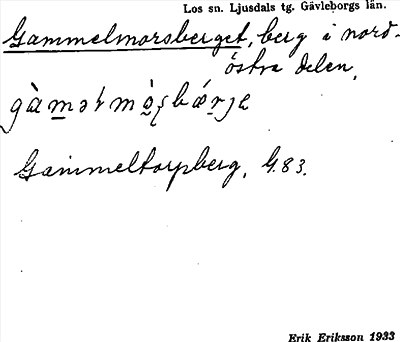 Los sn. Ljusdals tg. Gävleborgs län.
Gammelmorsberget, berg i nord-
östra delen,
Gammeltorpberg, G.83.
Erik Eriksson 1933